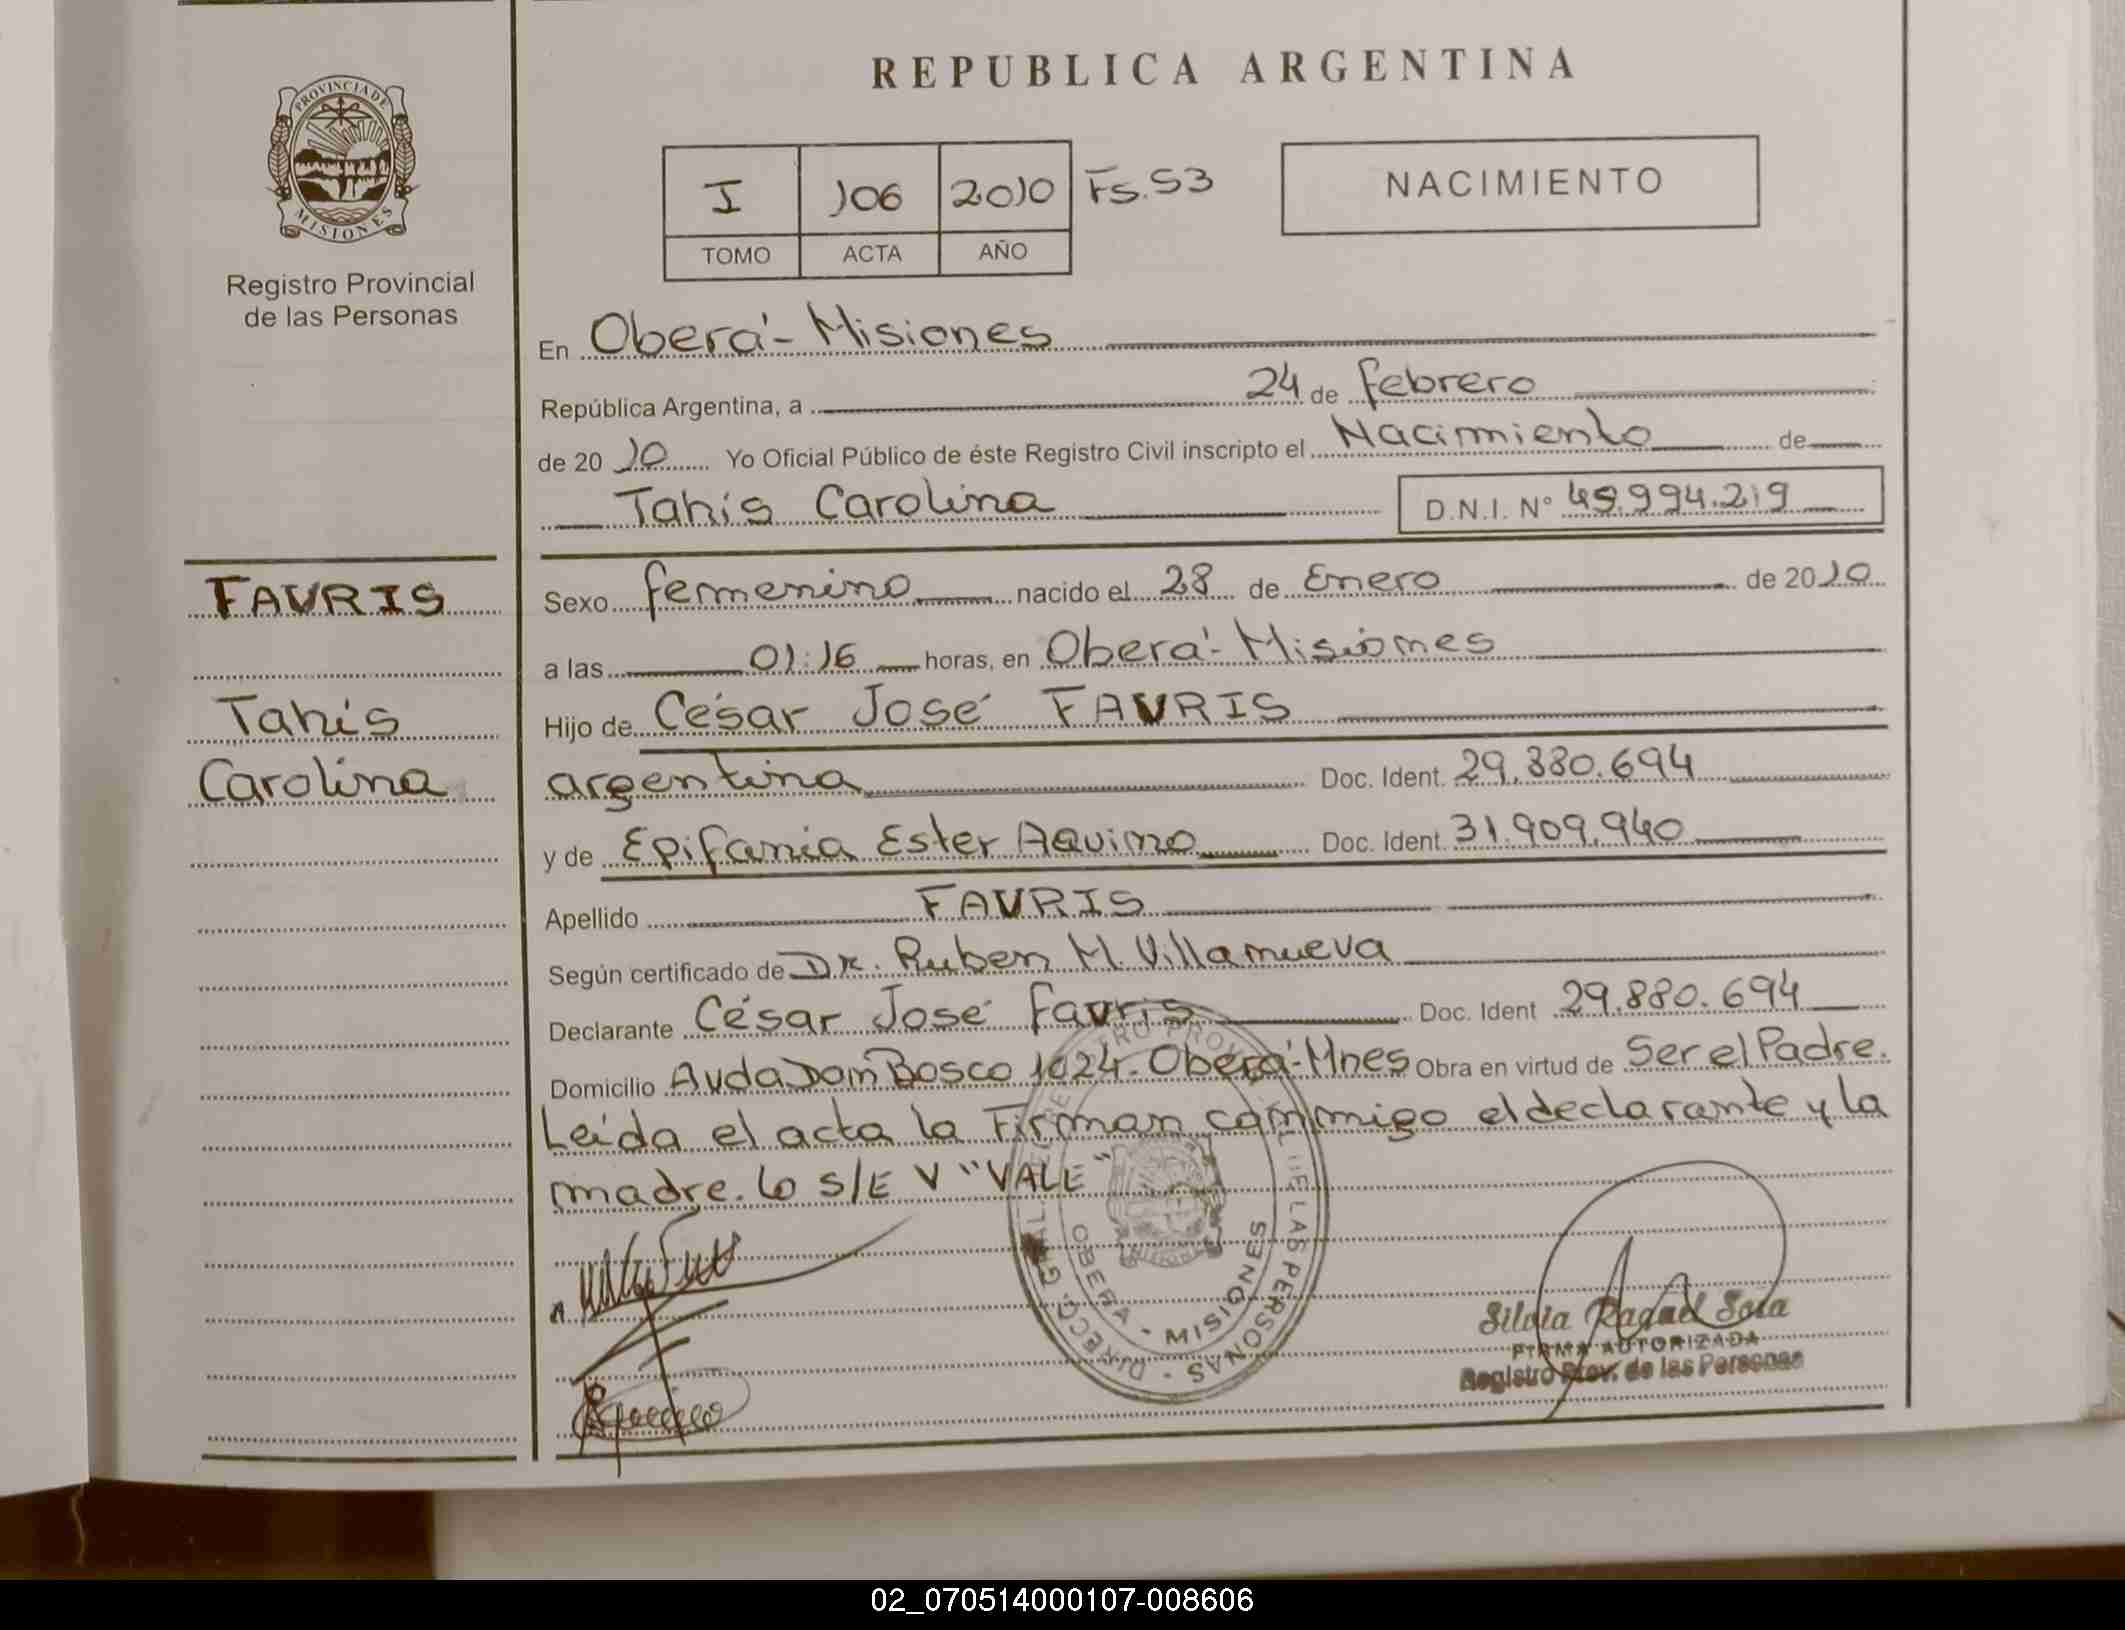 REPUBLICA ARGENTINA
PROVINCIA DE
MISIONES
Registro Provincial
de las Personas
I 106 2010 Fs.53
TOMO ACTA AÑO
NACIMIENTO
En Oberá - Misiones
República Argentina, a 24 de febrero
de 2010 Yo Oficial Público de éste Registro Civil inscripto el Nacimiento de
Tahis Carolina D.N.I. Nº 49.994.219
FAVRIS
Tahis
Carolina
Sexo femenino nacido el 28 de Enero de 2010
a las 01:16 horas, en Oberá - Misiones
Hijo de César José FAVRIS
argentina Doc. Ident. 29.880.694
y de Epifania Ester Aquino Doc. Ident. 31.909.940
Apellido FAVRIS
Según certificado de Dr. Ruben M. Villanueva
Declarante César José Favris Doc. Ident 29.880.694
Domicilio Avda Don Bosco 1024. Oberá - Mnes Obra en virtud de Ser el Padre.
Leída el acta la Firman conmigo el declarante y la
madre. lo s/E V "VALE"
OBERA - MISIONES
DE LAS PERSONAS
Silvia Raquel Sosa
FIRMA AUTORIZADA
Registro Prov. de las Personas
02_070514000107-008606